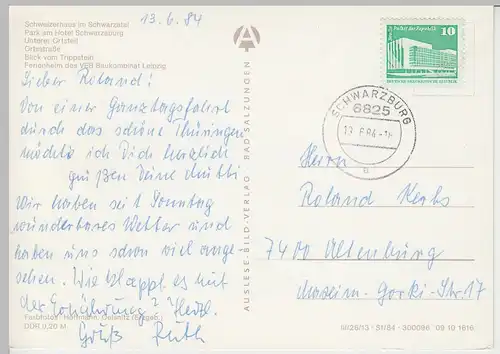 Schweizerhaus im Schwarzatal
Park am Hotel Schwarzaburg
Unterer Ortsteil
Ortsstraße
Blick vom Trippstein
Ferienheim des VEB Baukombinat Leipzig
13.6.84
Lieber Roland!
Von einer Ganztagsfahrt
durch das schöne Thüringen
möchte ich Dich herzlich
grüßen Deine Mutti.
Wir haben seit Sonntag
wunderbares Wetter und
haben uns schon viel ange-
sehen. Wie klappt es mit
der Ernährung? Herzl.
Gruß Ruth
Farbfotos: Hoffmann, Oelsnitz (Erzgeb.)
DDR 0,20 M
AUSLESE-BILD-VERLAG BAD SALZUNGEN
Palast der Republik
10
DEUTSCHE DEMOKRATISCHE REPUBLIK
SCHWARZBURG
6825
a
Herrn
Roland
7400 Altenburg
Maxim-Gorki-Str. 17
09 10 1816